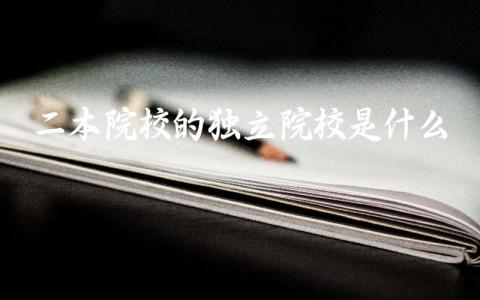 二本院校的独立院校是什么